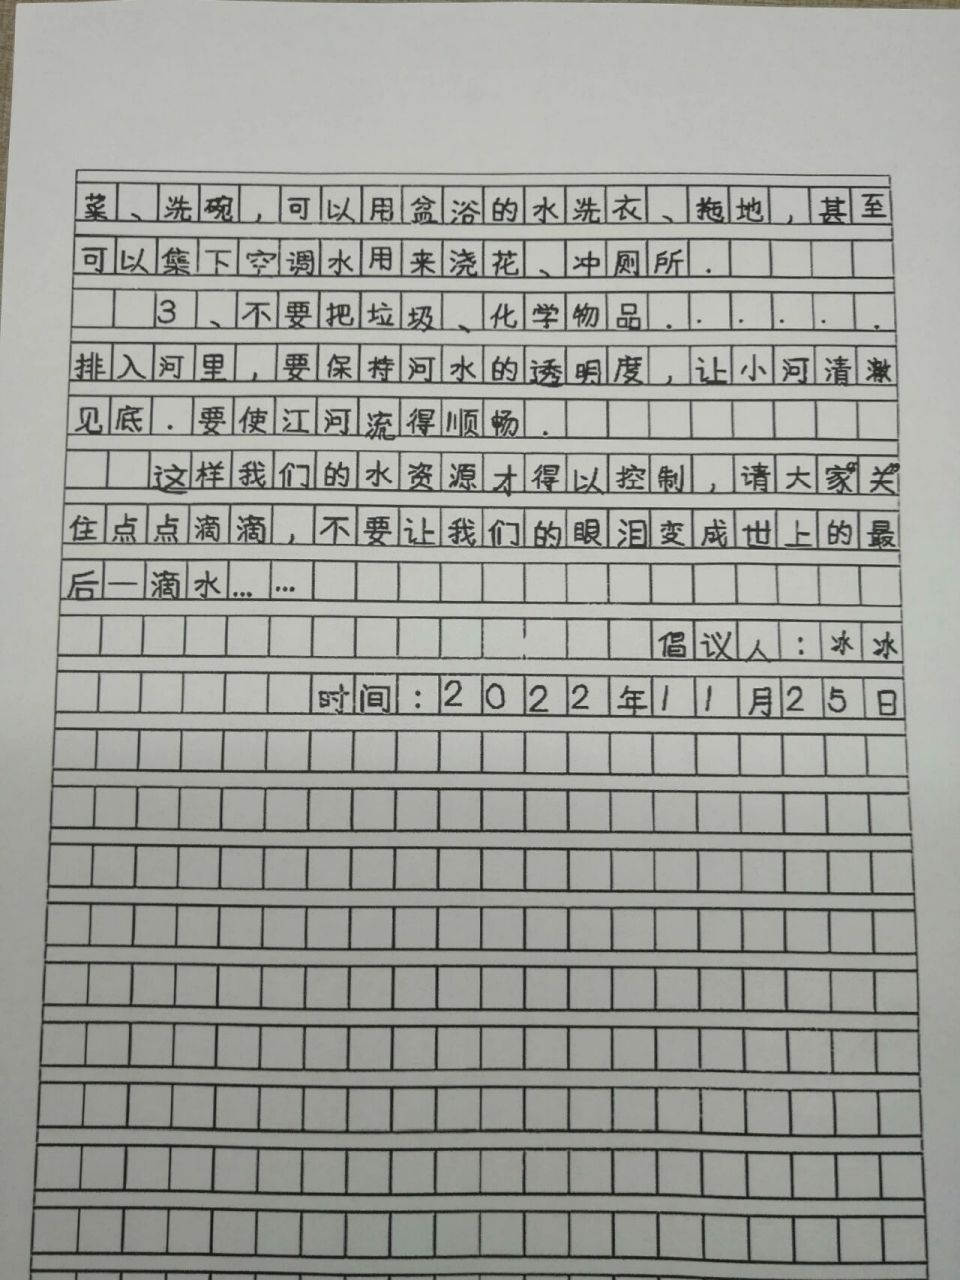 菜、洗碗，可以用盆浴的水洗衣、拖地，甚至
可以集下空调水用来浇花、冲厕所．
3、不要把垃圾、化学物品．．．．．．
排入河里，要保持河水的透明度，让小河清澈
见底．要使江河流得顺畅．
这样我们的水资源才得以控制，请大家“关”
住点点滴滴，不要让我们的眼泪变成世上的最
后一滴水……
倡议人：冰冰
时间：2022年11月25日